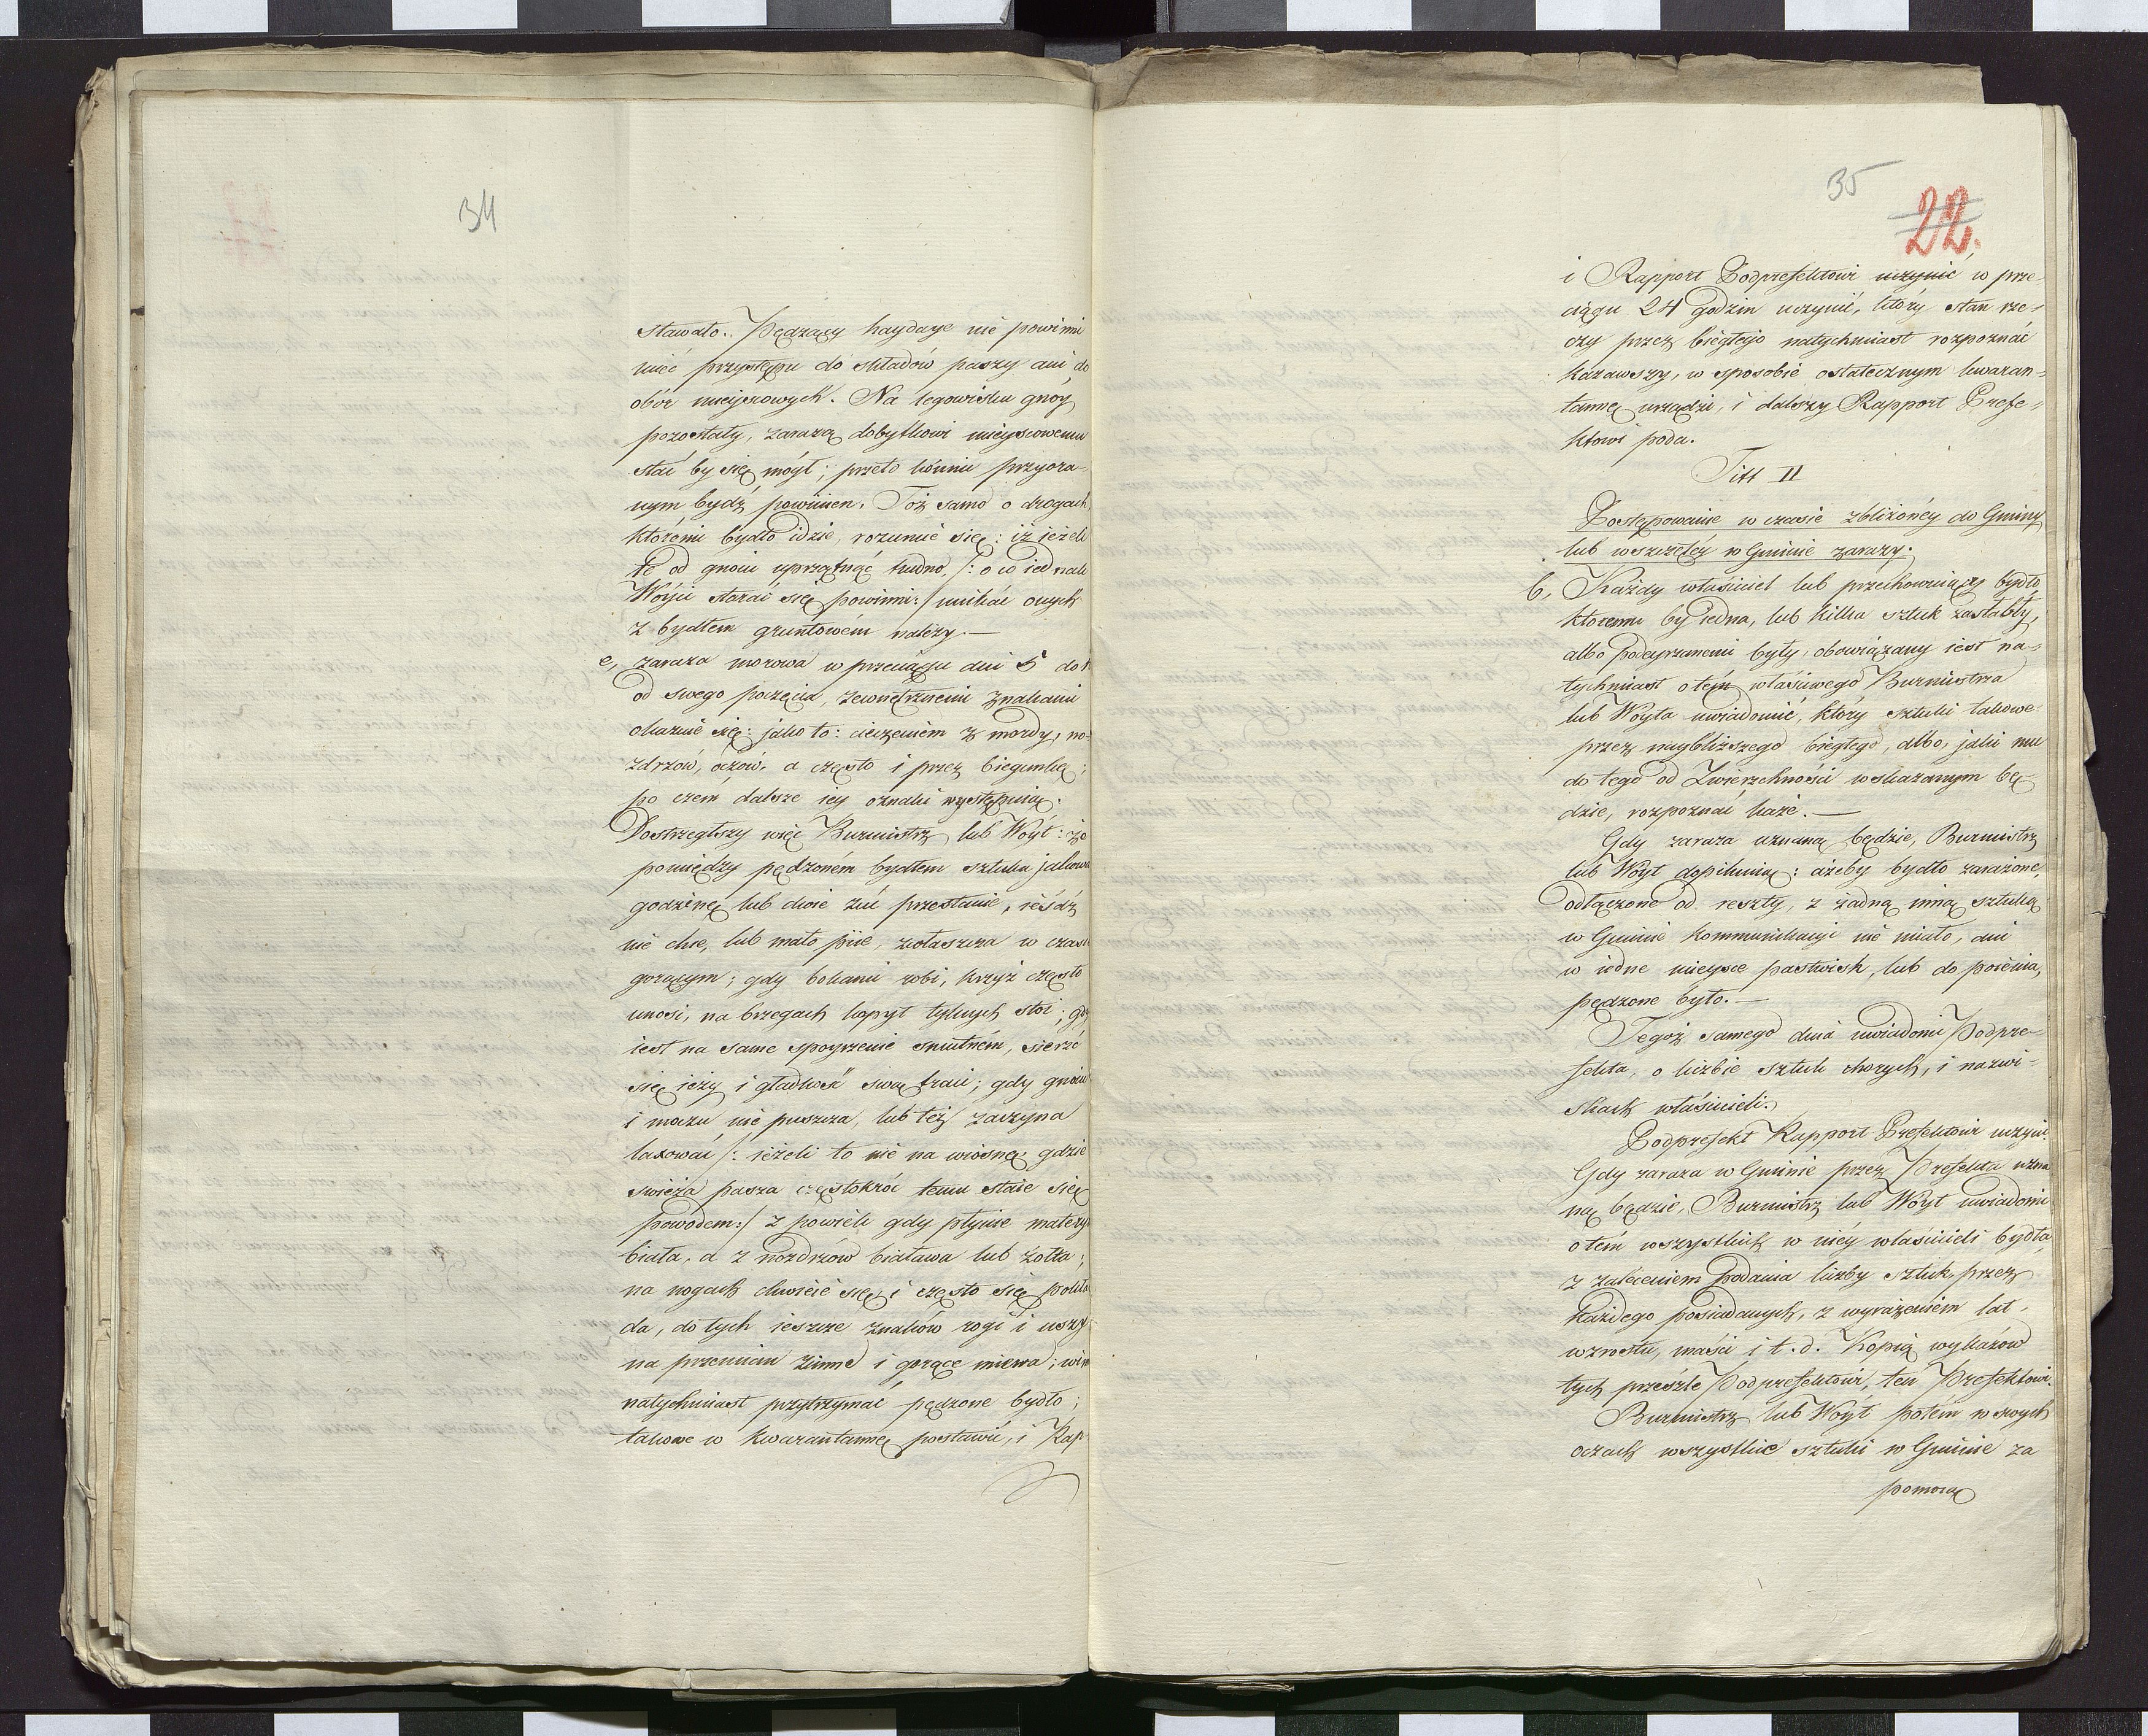 34
stawało. Pędzący haydaye nie powinni
mieć przystępu do składów paszy ani do
obór mieyscowych. Na legowisku gnóy
pozostały, zarazą dobytkowi mieyscowemu
stać by się mógł; przeto winnie przyora-
nym bydź powinien. Toż samo o drogach
któremi bydło idzie, rozumie się: iż ieżeli
te od gnoiu uprzątnąć trudno, /: o co iednak
Wóyci starać się powinni :/ unikać onych
z bydłem gruntowém należy. —
e, zaraza morowa w przeciągu dni 5 do
od swego poczęcia, zewnętrznemi znakami
okazuie się: jako to: cieczeniem z mordy, no-
zdrzów, oczów, a często i przez biegunkę;
po czem dalsze iey oznaki występuią.
Dostrzegłszy więc Burmistrz lub Wóyt: że
pomiędzy pędzoném bydłem sztuka jakowa
godzinę lub dwie żuć przestanie, ieśdź
nie chce, lub mało piie, zwłaszcza w czasie
gorącym; gdy bokami robi, krzyż często
unosi, na brzegach kopyt tylnych stoi; gdy
iest na same spoyrzenie smutném, sierść
się ieży i gładkość swą traci; gdy gnoiu
i moczu nie puszcza, lub też zaczyna
laxować /: ieżeli to nie na wiosnę gdzie
swieża pasza częstokroć temu staie się
powodem :/ z powiek gdy płynie materya
biała, a z nozdrzów biaława lub żółta;
na nogach chwieie się i często się pokła
da, do tych ieszcze znaków rogi i uszy
na przemian zimne i gorące miewa; win
natychmiast przytrzymać pędzone bydło;
takowe w kwarantannę postawić, i Rap
35
22.
i Rapport Podprefektowi uczynić w prze-
ciągu 24 godzin uczynić, który stan rze-
czy przez biegłego natychmiast rozpoznać
kazawszy, w sposobie ostatecznym kwaran-
tannę urządzi, i dalszy Rapport Prefe-
ktowi poda.
Titl II
Postępowanie w czasie zbliżonéy do Gminy
lub wszczętéy w Gminie zarazy.
6, Każdy właściciel lub przechowuiący bydło,
któremu by iedna, lub kilka sztuk zasłabły,
albo podeyrzanemi były, obowiązany iest na-
tychmiast o tém właściwego Burmistrza
lub Woyta uwiadomić, który sztuki takowe
przez naybliższego biegłego, albo, jaki mu
do tego od Zwierzchności wskazanym bę-
dzie, rozpoznać każe. —
Gdy zaraza uznaną będzie, Burmistrz
lub Woyt dopilnuią: ażeby bydło zarażone,
odłączone od reszty, z żadną inną sztuką
w Gminie kommunikacyi nie miało, ani
w iedne mieysce pastwisk, lub do poienia,
pędzone było. —
Tegoż samego dnia uwiadomi Podpre-
fekta, o liczbie sztuk chorych, i nazwi-
skach właścicieli.
Podprefekt Rapport Prefektowi uczyni.
Gdy zaraza w Gminie przez Prefekta uzna
ną będzie, Burmistrz lub Woyt uwiadomi
o tém wszystkich w niéy właścicieli bydła,
z zaleceniem podania liczby sztuk, przez
każdego posiadanych, z wyrażeniem lat,
wzrostu, maści i t. d. Kopią wykazów
tych prześle Podprefektowi, ten Prefektowi.
Burmistrz lub Woyt potém w swych
oczach wszystkie sztuki w Gminie za
pomocą